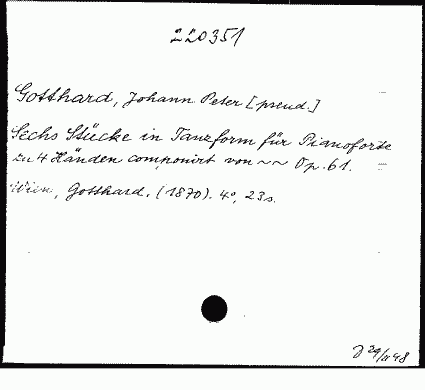 220351
Gotthard, Johann Peter [pseud.]
Sechs Stücke in Tanzform für Pianoforte
zu 4 Händen componirt von ~~ Op. 61.
Wien, Gotthard. (1870). 4°, 23 s.
29/II 48